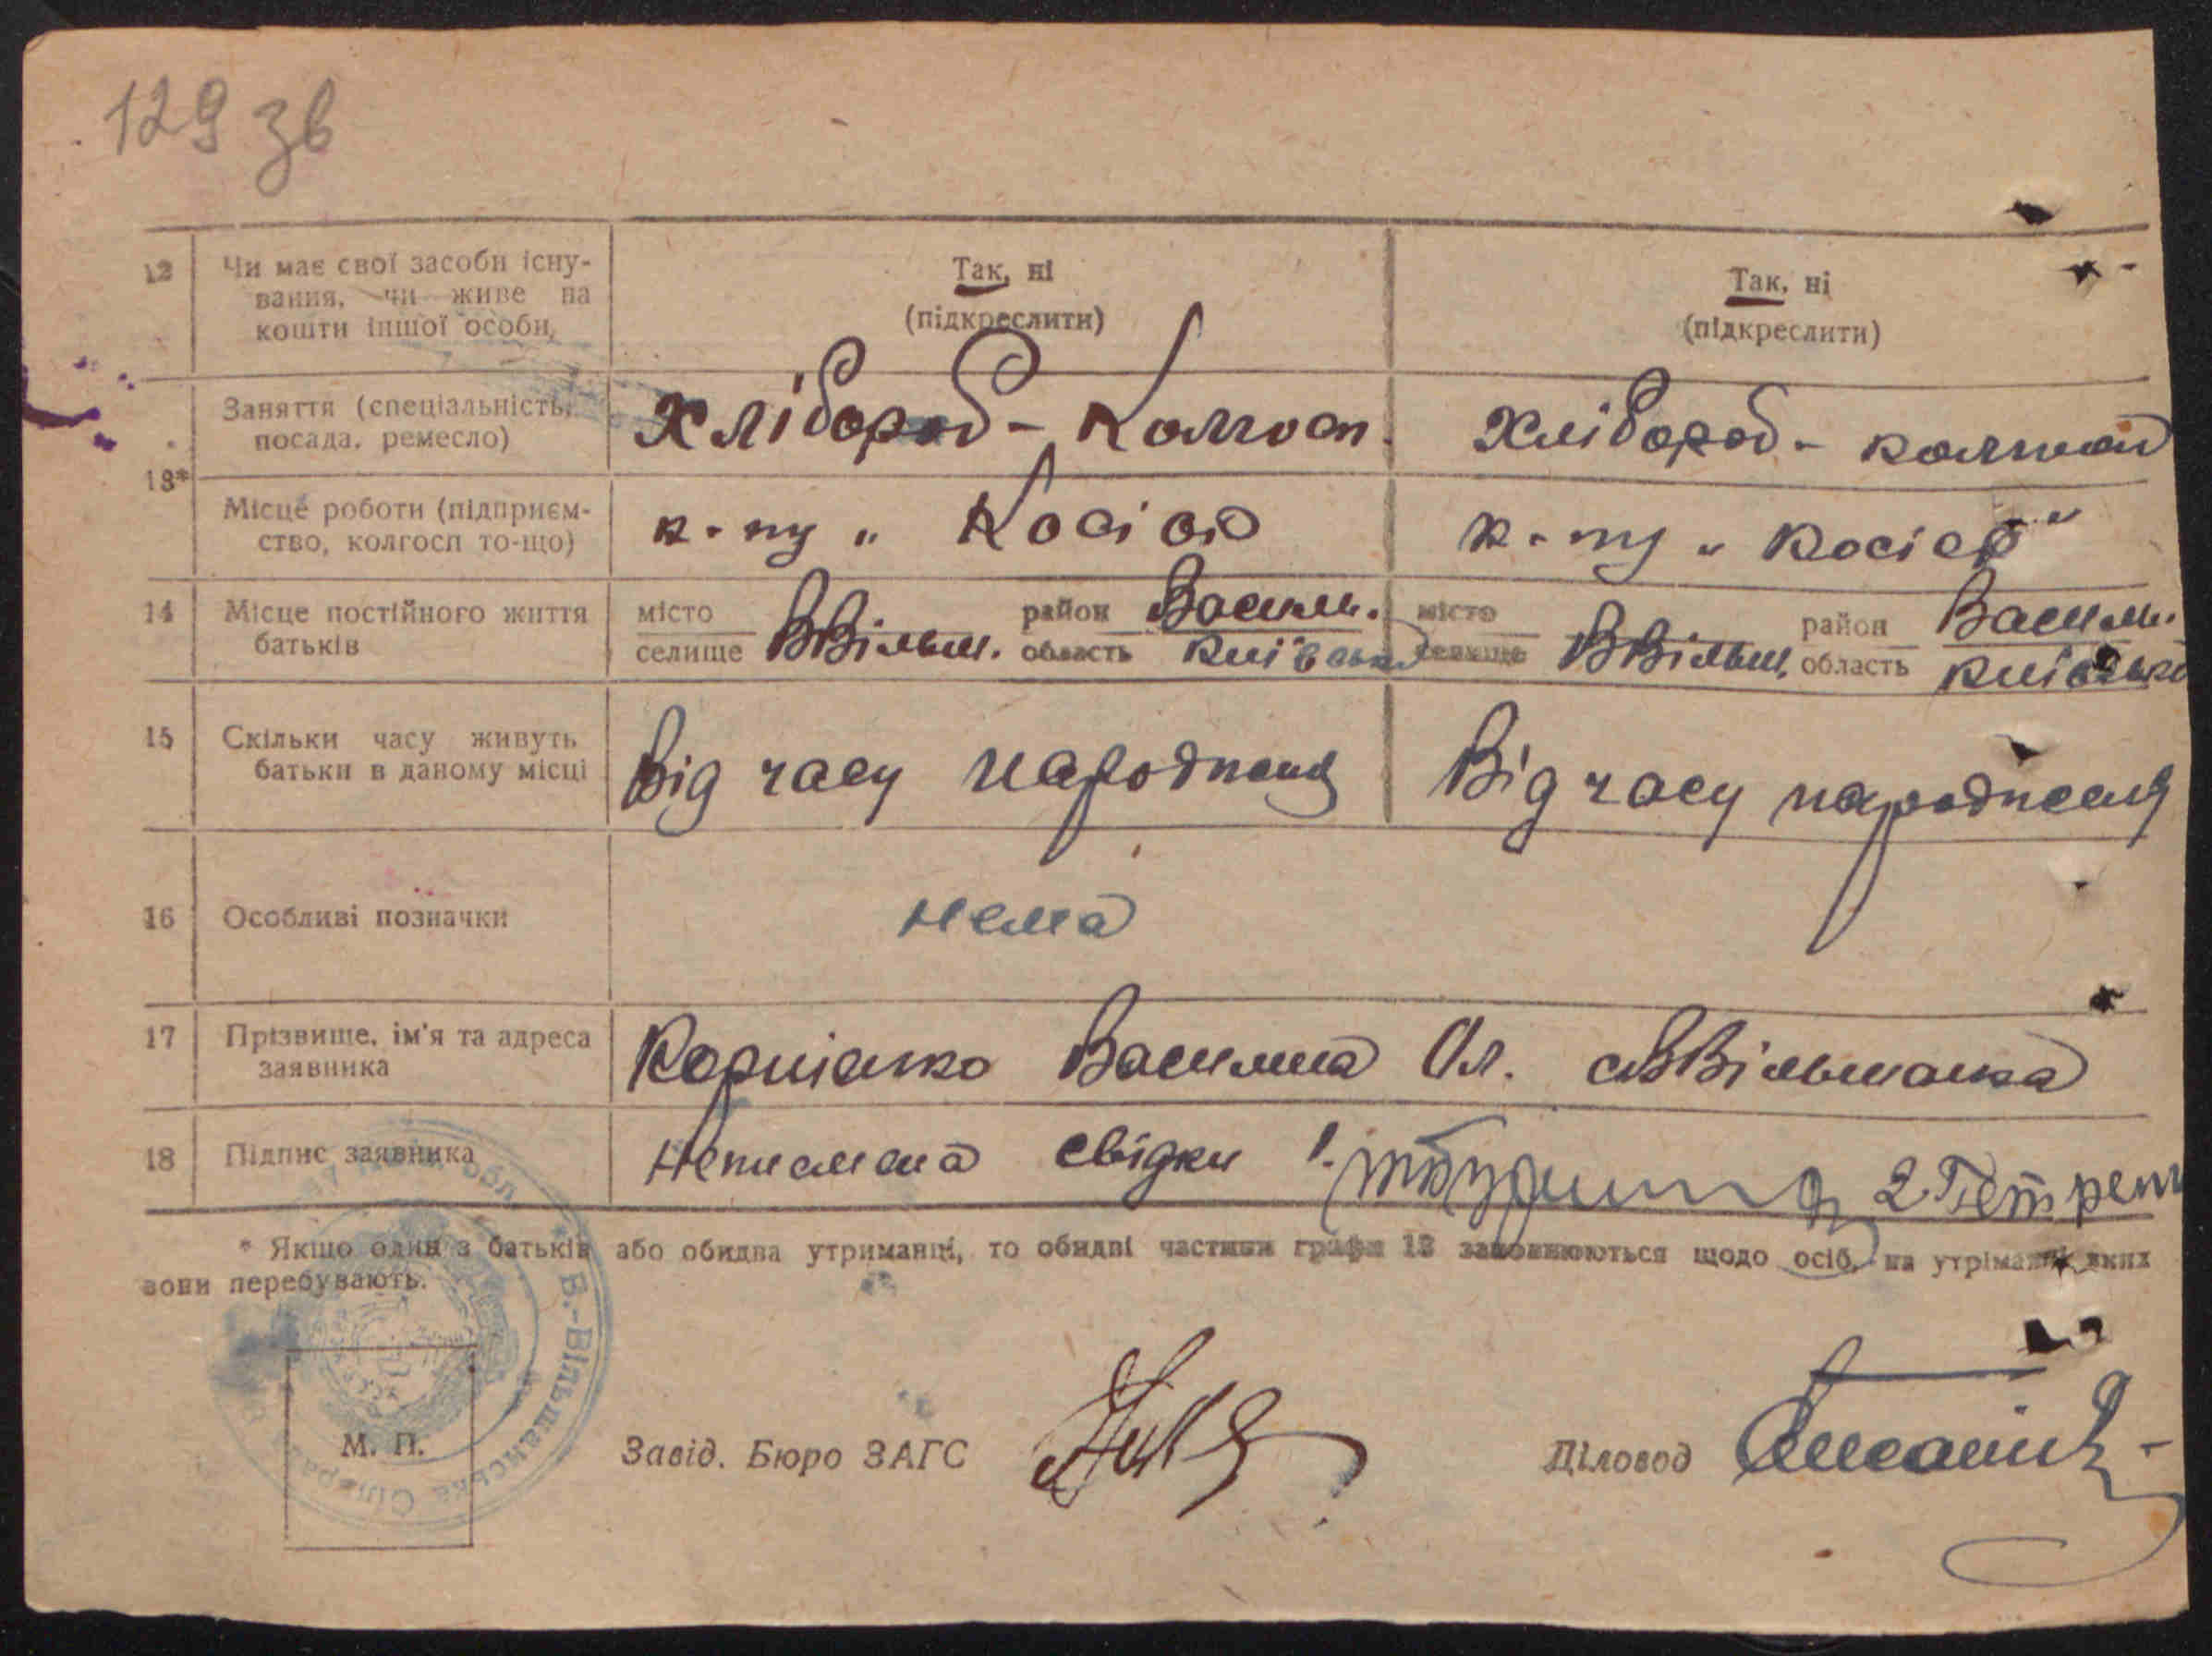 129 зв
12 Чи має свої засоби існу-
вання, чи живе на
кошти іншої особи,
Так, ні
(підкреслити)
Так, ні
(підкреслити)
13*
Заняття (спеціальність,
посада, ремесло)
Хлібороб - Колгосп.
Хлібороб - колгосп
Місце роботи (підприєм-
ство, колгосп то-що)
к-пу „ Косіор
к-пу „ Косіор"
14 Місце постійного життя
батьків
місто
селище ВВільш. район Васильк. область Київська
місто
селище ВВільш. район Васильк. область Київська
15 Скільки часу живуть
батьки в даному місці
Від часу народження
Від часу народження
16 Особливі позначки
нема
17 Прізвище, ім'я та адреса
заявника
Корнієнко Василина Ол. с ВВільшанка
18 Підпис заявника
Неписмена свідки 1. 2 Петренк
* Якщо один з батьків або обидва утриманці, то обидві частини графи 13 заповнюються щодо осіб, на утриманні яких
вони перебувають.
В.-Вільшанська Сільрада
обл
М. П.
Завід. Бюро ЗАГС
Діловод